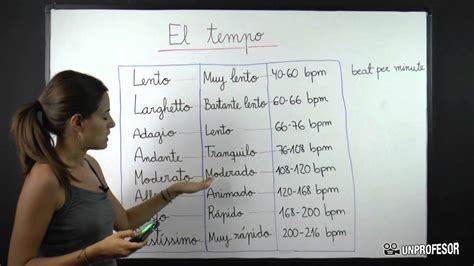 El tempo
Lento Muy lento 40-60 bpm beat per minute
Larghetto Bastante lento 60-66 bpm
Adagio Lento 66-76 bpm
Andante Tranquilo 76-108 bpm
Moderato Moderado 108-120 bpm
Animado 120-168 bpm
Rápido 168-200 bpm
Muy rápido 200-216 bpm
UNPROFESOR